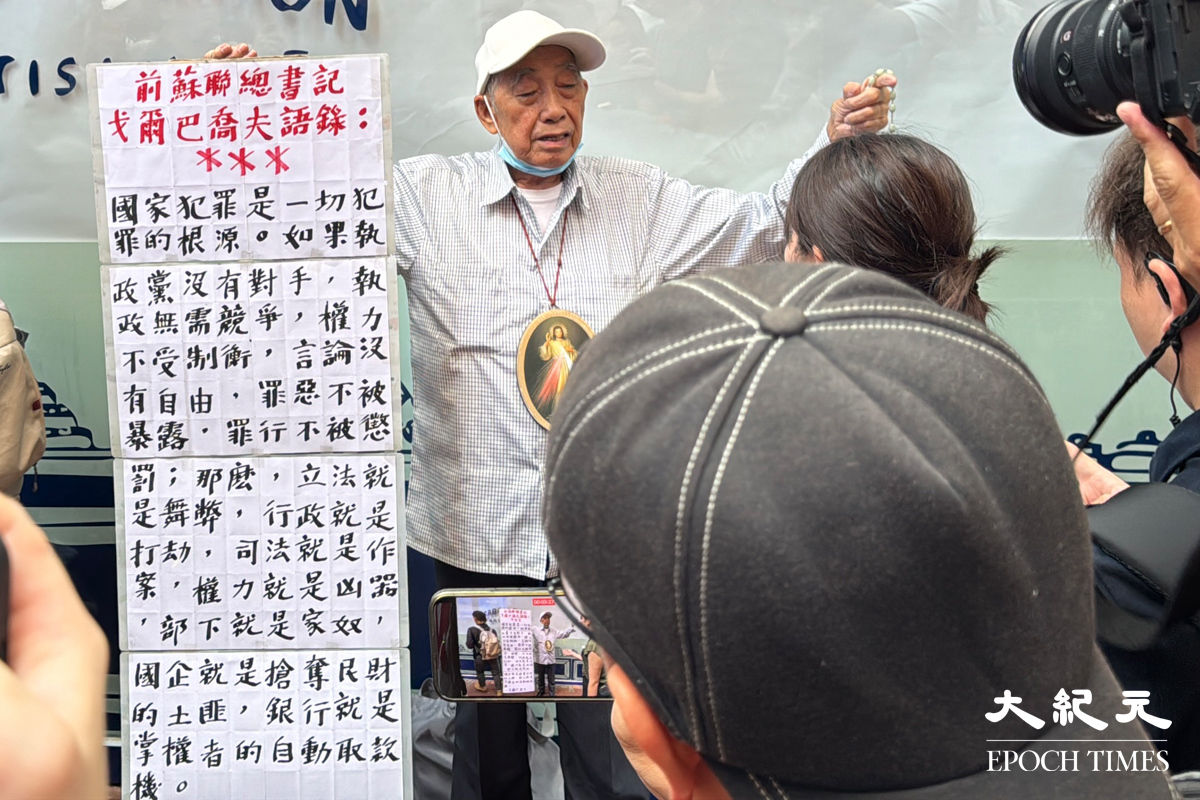 ON
TIS
前蘇聯總書記
戈爾巴喬夫語錄：
***
國家犯罪是一切犯
罪的根源。如果執
政黨沒有對手，執
政無需競爭，權力
不受制衡，言論沒
有自由，罪惡不被
暴露，罪行不被懲
罰；那麽，立法就
是舞弊，行政就是
打劫，司法就是作
案，權力就是凶器
，部下就是家奴，
國企就是搶奪民財
的土匪，銀行就是
掌權者的自動取款
機。
大紀元
EPOCH TIMES